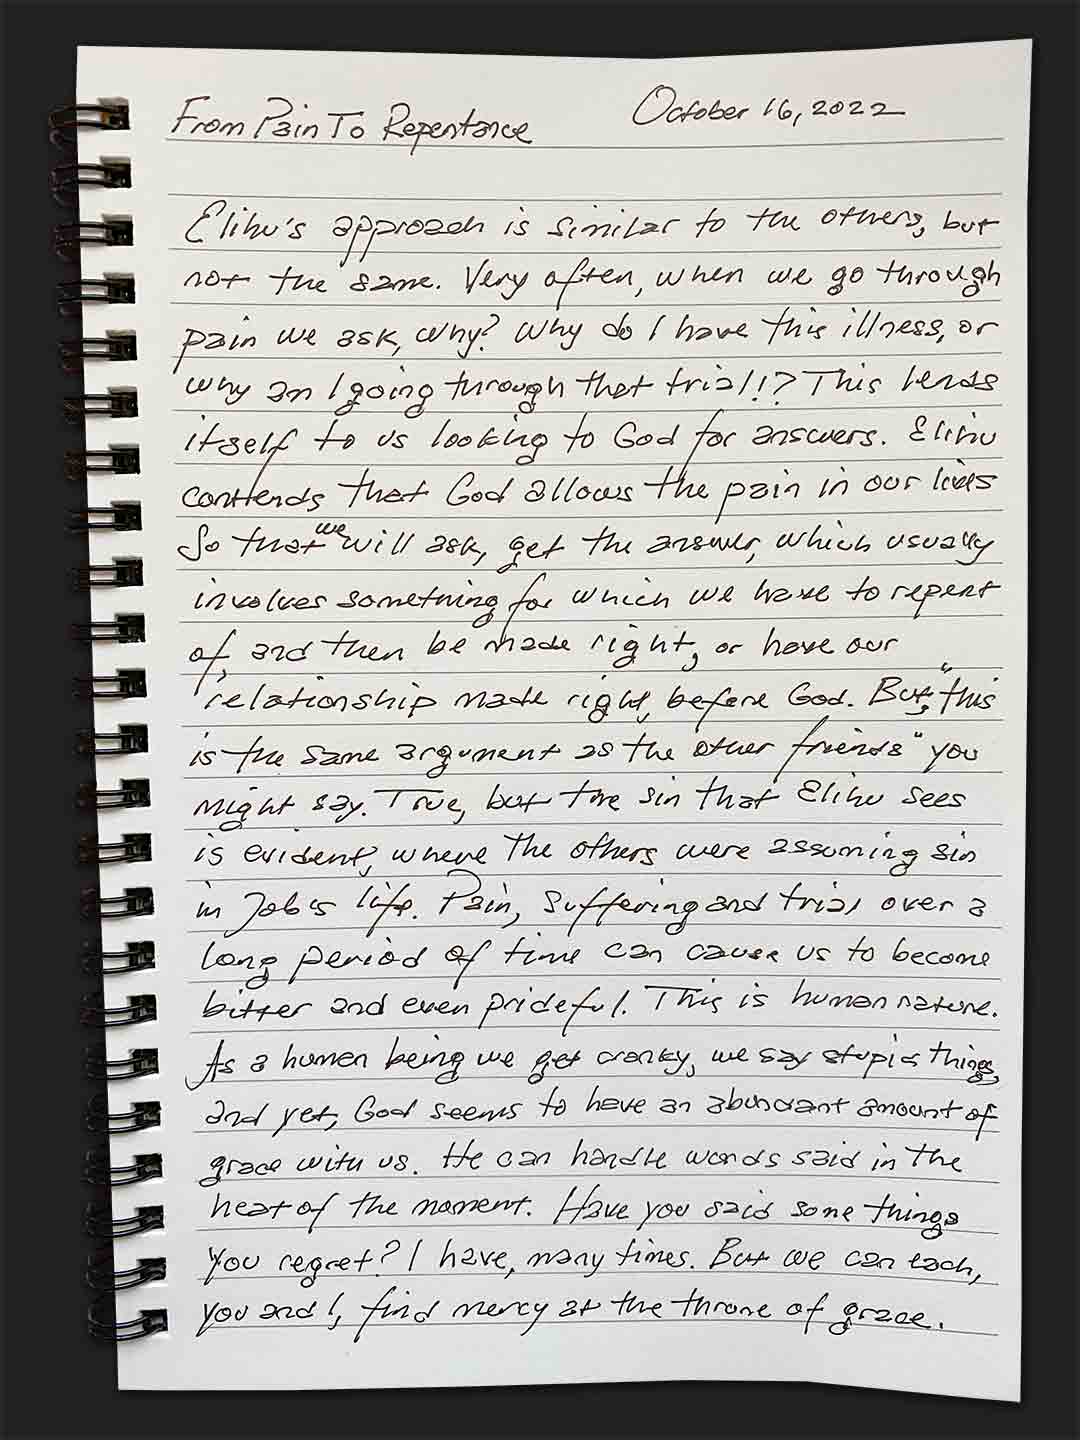 From Pain To Repentance
October 16, 2022
Elihu's approach is similar to the others, but
not the same. Very often, when we go through
pain we ask, why? Why do I have this illness, or
why am I going through that trial!? This lends
itself to us looking to God for answers. Elihu
contends that God allows the pain in our lives
So that we will ask, get the answer, which usually
involves something for which we have to repent
of, and then be made right, or have our
relationship made right, before God. But, "this
is the same argument as the other friends" you
might say. True, but the sin that Elihu sees
is evident, where the others were assuming sin
in Job's life. Pain, suffering and trial over a
long period of time can cause us to become
bitter and even prideful. This is human nature.
As a human being we get cranky, we say stupid things,
and yet, God seems to have an abundant amount of
grace with us. He can handle words said in the
heat of the moment. Have you said some things
you regret? I have, many times. But we can each,
you and I, find mercy at the throne of grace.